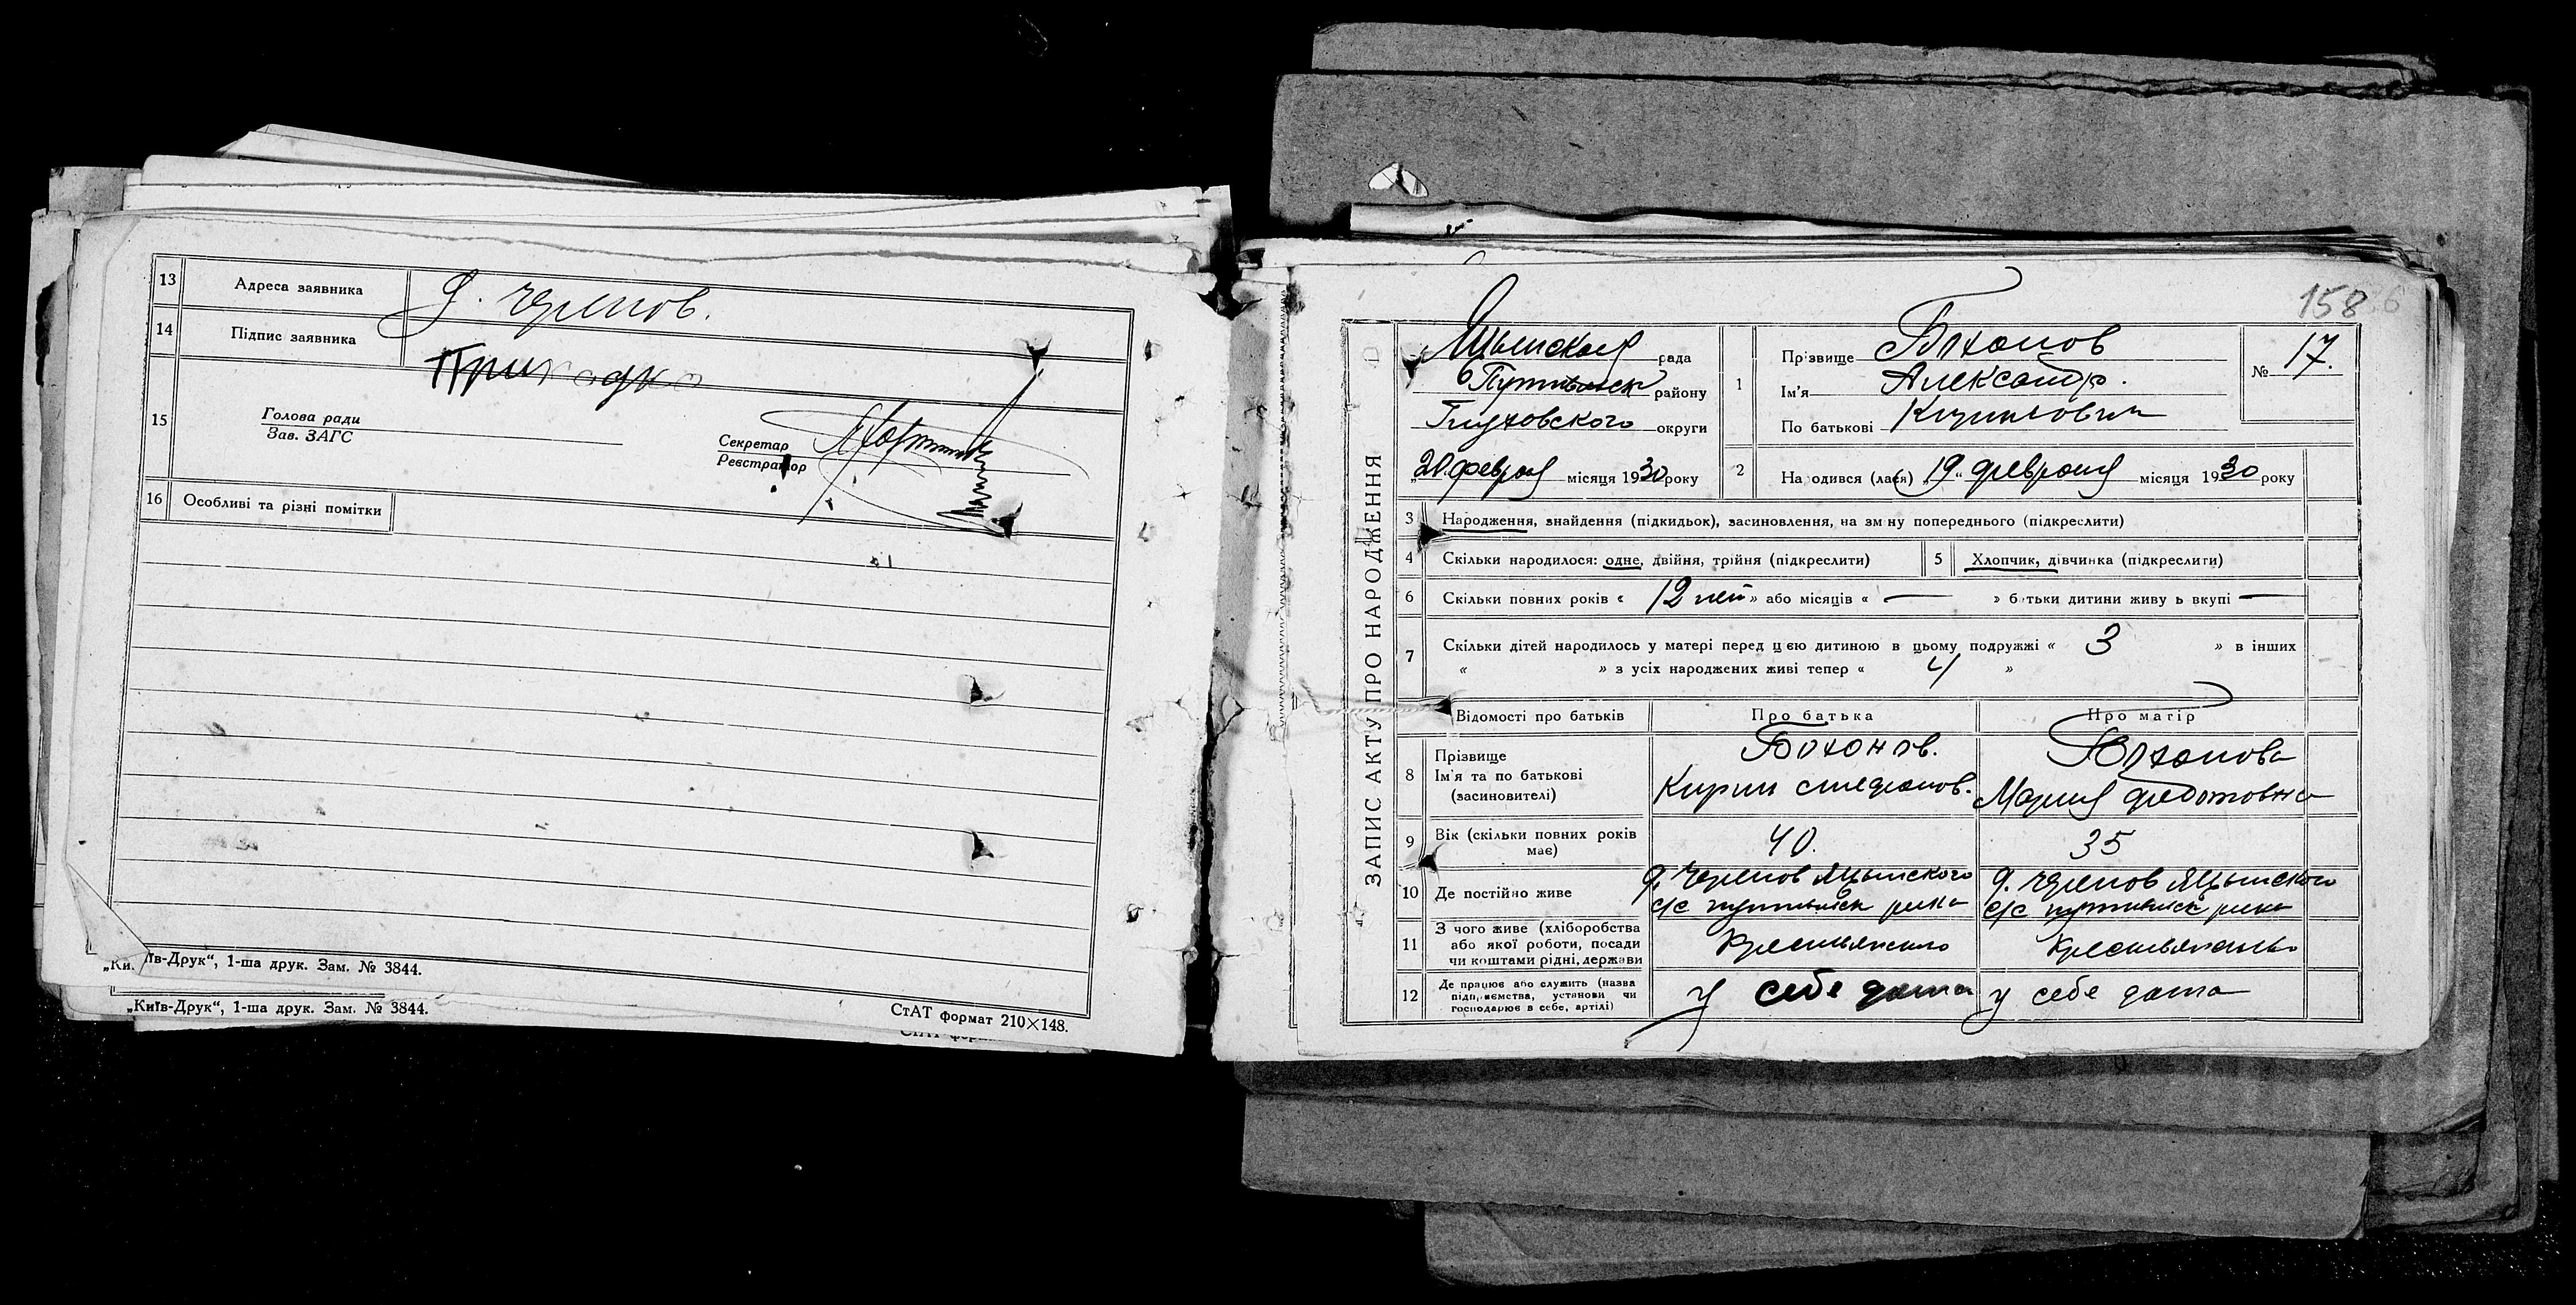 13 Адреса заявника д. Черепов.
14 Підпис заявника
Приходко
15 Голова ради
Зав. ЗАГС
Секретар
Реєстратор
16 Особливі та різні помітки
„Київ-Друк“, 1-ша друк. Зам. № 3844.
„Київ-Друк“, 1-ша друк. Зам. № 3844.
СтАТ формат 210×148.
158
ЗАПИС АКТУ ПРО НАРОДЖЕННЯ
рада
Путивльск району
Глуховского округи
„20 февраля місяця 1930 року
1 Прізвище Боханов
Ім'я Александр.
По батькові Кирилович
№ 17.
2 Народився (лася) „19“ февраля місяця 1930 року
3 Народження, знайдення (підкидьок), засиновлення, на зміну попереднього (підкреслити)
4 Скільки народилося: одне, двійня, трійня (підкреслити)
5 Хлопчик, дівчинка (підкреслити)
6 Скільки повних років « 12 лет » або місяців « — » батьки дитини живуть вкупі —
7 Скільки дітей народилось у матері перед цією дитиною в цьому подружжі « 3 » в інших
« » з усіх народжених живі тепер « 4 »
Відомості про батьків Про батька Про матір
8 Прізвище Боханов. Боханова
Ім'я та по батькові Кирил Стефанов. Мария Федотовна
(засиновителі)
9 Вік (скільки повних років має) 40. 35
10 Де постійно живе д. Черепов Яцынского д. Черепов Яцынского
с/с Путивльск рика с/с Путивльск рика
11 З чого живе (хліборобства
або якої роботи, посади
чи коштами рідні, держави
12 Де працює або служить (назва
підприємства, установи чи
господарює в себе, артілі)
у себе дома у себе дома